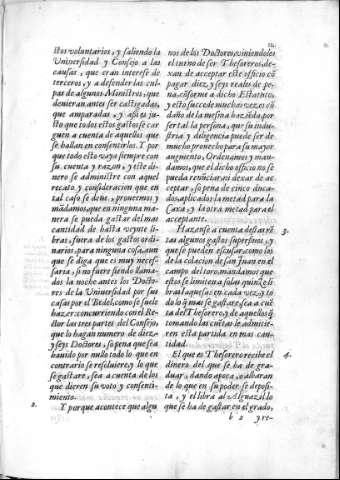 stos voluntarios, y saliendo la
Universidad y Consejo a las
causas, que eran interese de
terceros, y a defender las cul-
pas de algunos Ministros, que
devieran antes ser castigadas,
que amparadas, y assi es ju-
sto que todos estos gastos se car-
guen a cuenta de aquellos que
se hallan en consentirlos. Y por
que todo esto vaya siempre con
su cuenta y razon, y este di-
nero se administre con aquel
recato, y consideracion que en
tal caso se deve, proveemos y
mãdamos, que en ninguna ma-
nera se pueda gastar del mas
cantidad de hasta veynte li-
bras, fuera de los gastos ordi-
narios, para ninguna cosa, aun
que se diga que es muy neces-
saria, si no fuere siendo llama-
dos la noche antes los Docto-
res de la Universidad por sus
casas por el Bedel, como se suele
hazer, concurriendo con el Re-
ctor las tres partes del Consejo,
que lo hagan numero de diez,
y seys Doctores, so pena que sea
havido por nullo todo lo que en
contrario se resolviere, y lo que
se gastare, sea a cuenta de los
que dieren su voto y consenti-
miento.
2. Y porque acontece que algu
nos de los Doctores, viniendoles
el turno de ser Thesoreros, de-
xan de acceptar este officio cõ
pagar diez, y seys reales de pe-
na, cõforme a dicho Estatuto,
y esto succede muchas vezes cõ
daño de la mesma hazienda, por
ser tal la persona, que su indu-
stria y diligencia puede ser de
mucho provecho para su mayor
augmento, Ordenamos y man-
damos, que el dicho officio no se
pueda renũciar, ni dexar de ac-
ceptar, so pena de cinco duca-
dos, aplicados la metad para la
Caxa, y la otra metad para el
acceptante.
Hazense a cuenta desta rẽ- 3.
ta algunos gastos superfluos, y
que se pueden escusar, como los
de la colacion de san Juan en el
campo del toro, mandamos que
estos se limiten a solas quinze li
bras Iaquesas en cada vez, y to
do lo q̃ mas se gastare, sea a cuẽ
ta del Thesorero, y de aquellos q̃
tomando las cuẽtas, le admitie-
ren esta partida en mas can-
tidad.
El que es Thesorero recibe el 4.
dinero del que se ha de gra-
duar, dando apoca, o albaran
de lo que en su poder se deposi-
ta, y el libra al Alguazil lo
que se ha de gastar en el grado,
b 2 y re-